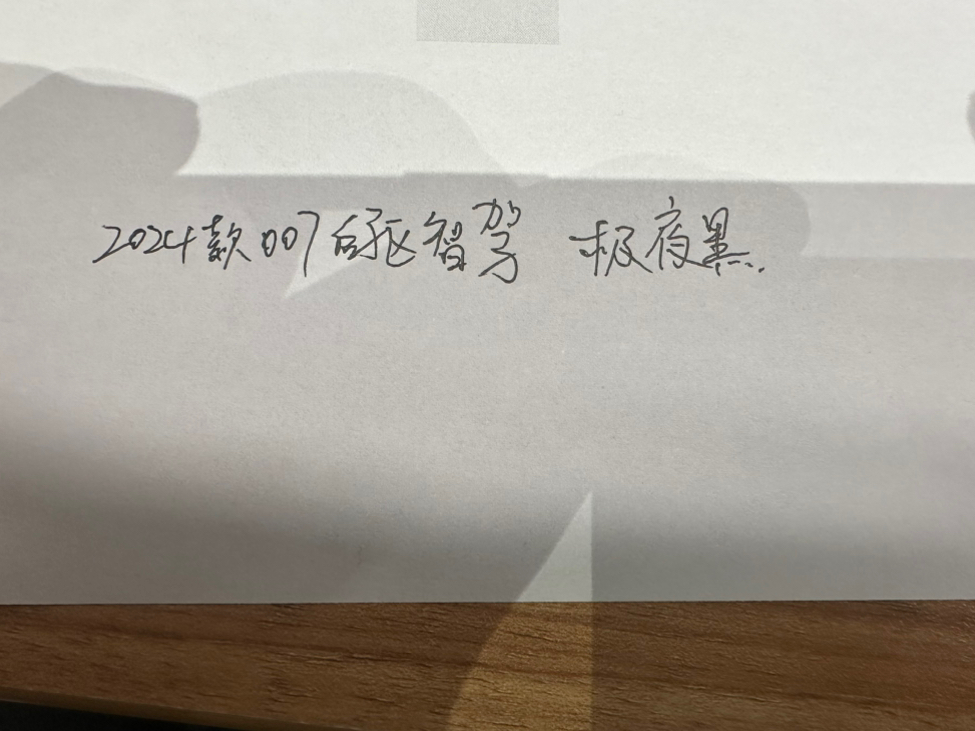 2024款007后驱智驾 极夜黑.